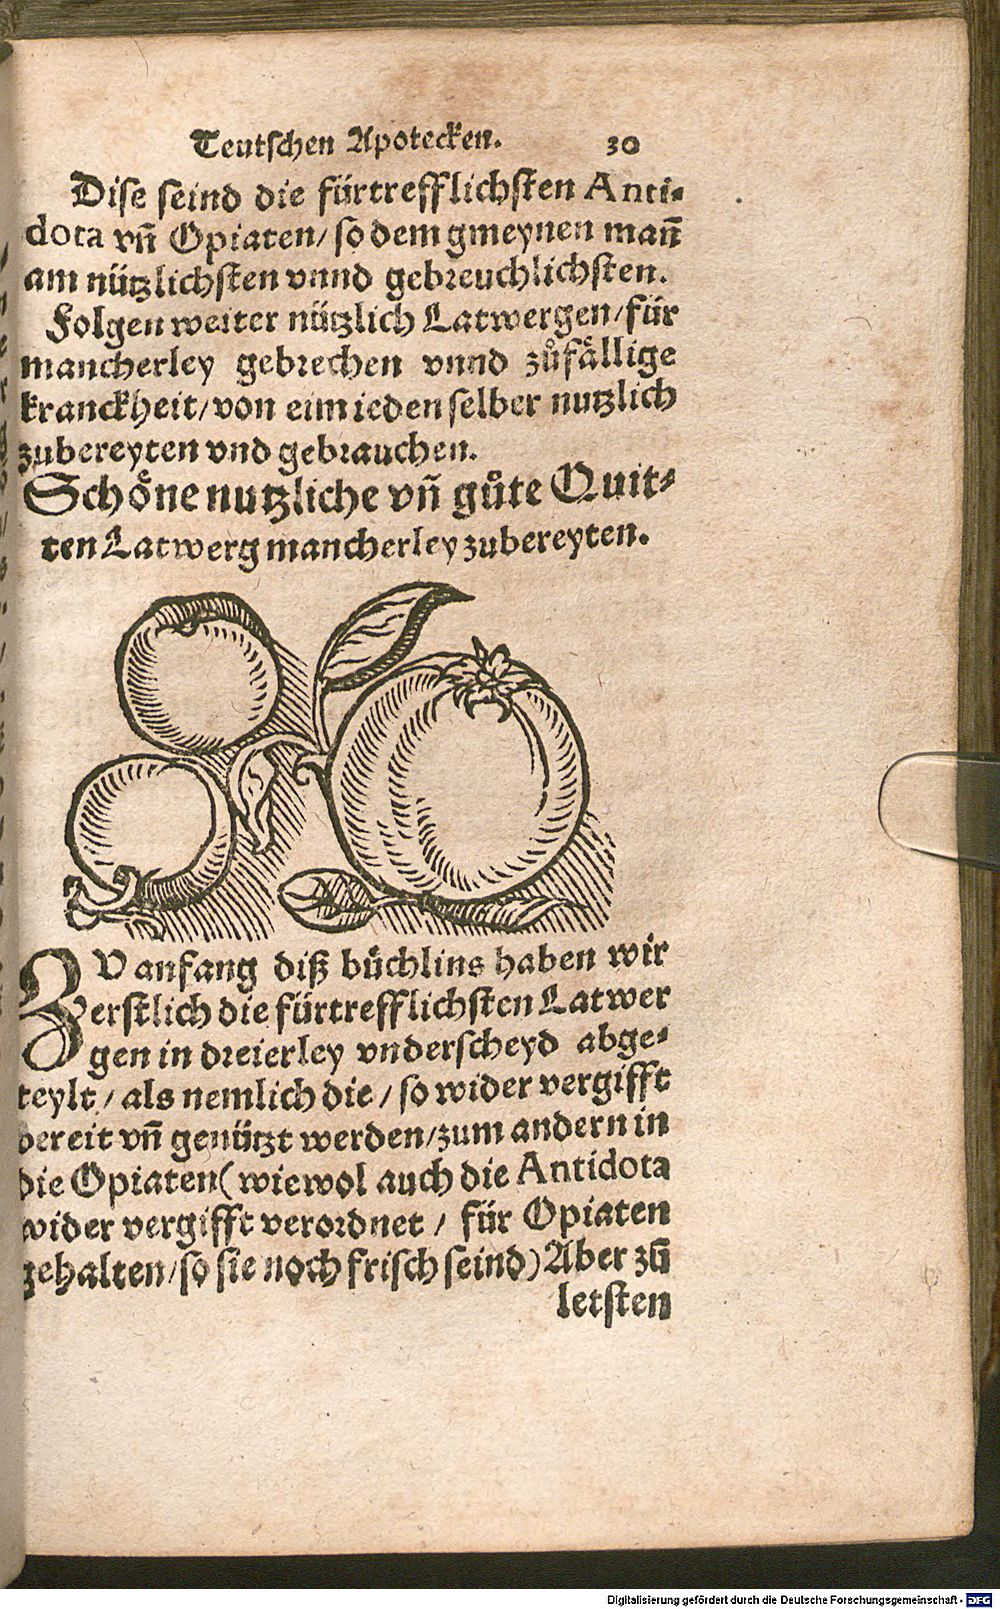 Teutschen Apotecken. 30
Dise seind die fürtrefflichsten Anti-
dota vñ Opiaten/ so dem gmeynen mañ
am nützlichsten vnnd gebreuchlichsten.
Folgen weiter nützlich Latwergen/ für
mancherley gebrechen vnnd zůfällige
kranckheit/ von eim ieden selber nutzlich
zubereyten vnd gebrauchen.
Schöne nutzliche vñ gůte Quit-
ten Latwerg mancherley zubereyten.
ZV anfang diß büchlins haben wir
erstlich die fürtrefflichsten Latwer
gen in dreierley vnderscheyd abge-
teylt/ als nemlich die/ so wider vergifft
bereit vñ genützt werden/ zum andern in
die Opiaten (wiewol auch die Antidota
wider vergifft verordnet/ für Opiaten
gehalten/ so sie noch frisch seind) Aber zů
letsten
Digitalisierung gefördert durch die Deutsche Forschungsgemeinschaft - DFG